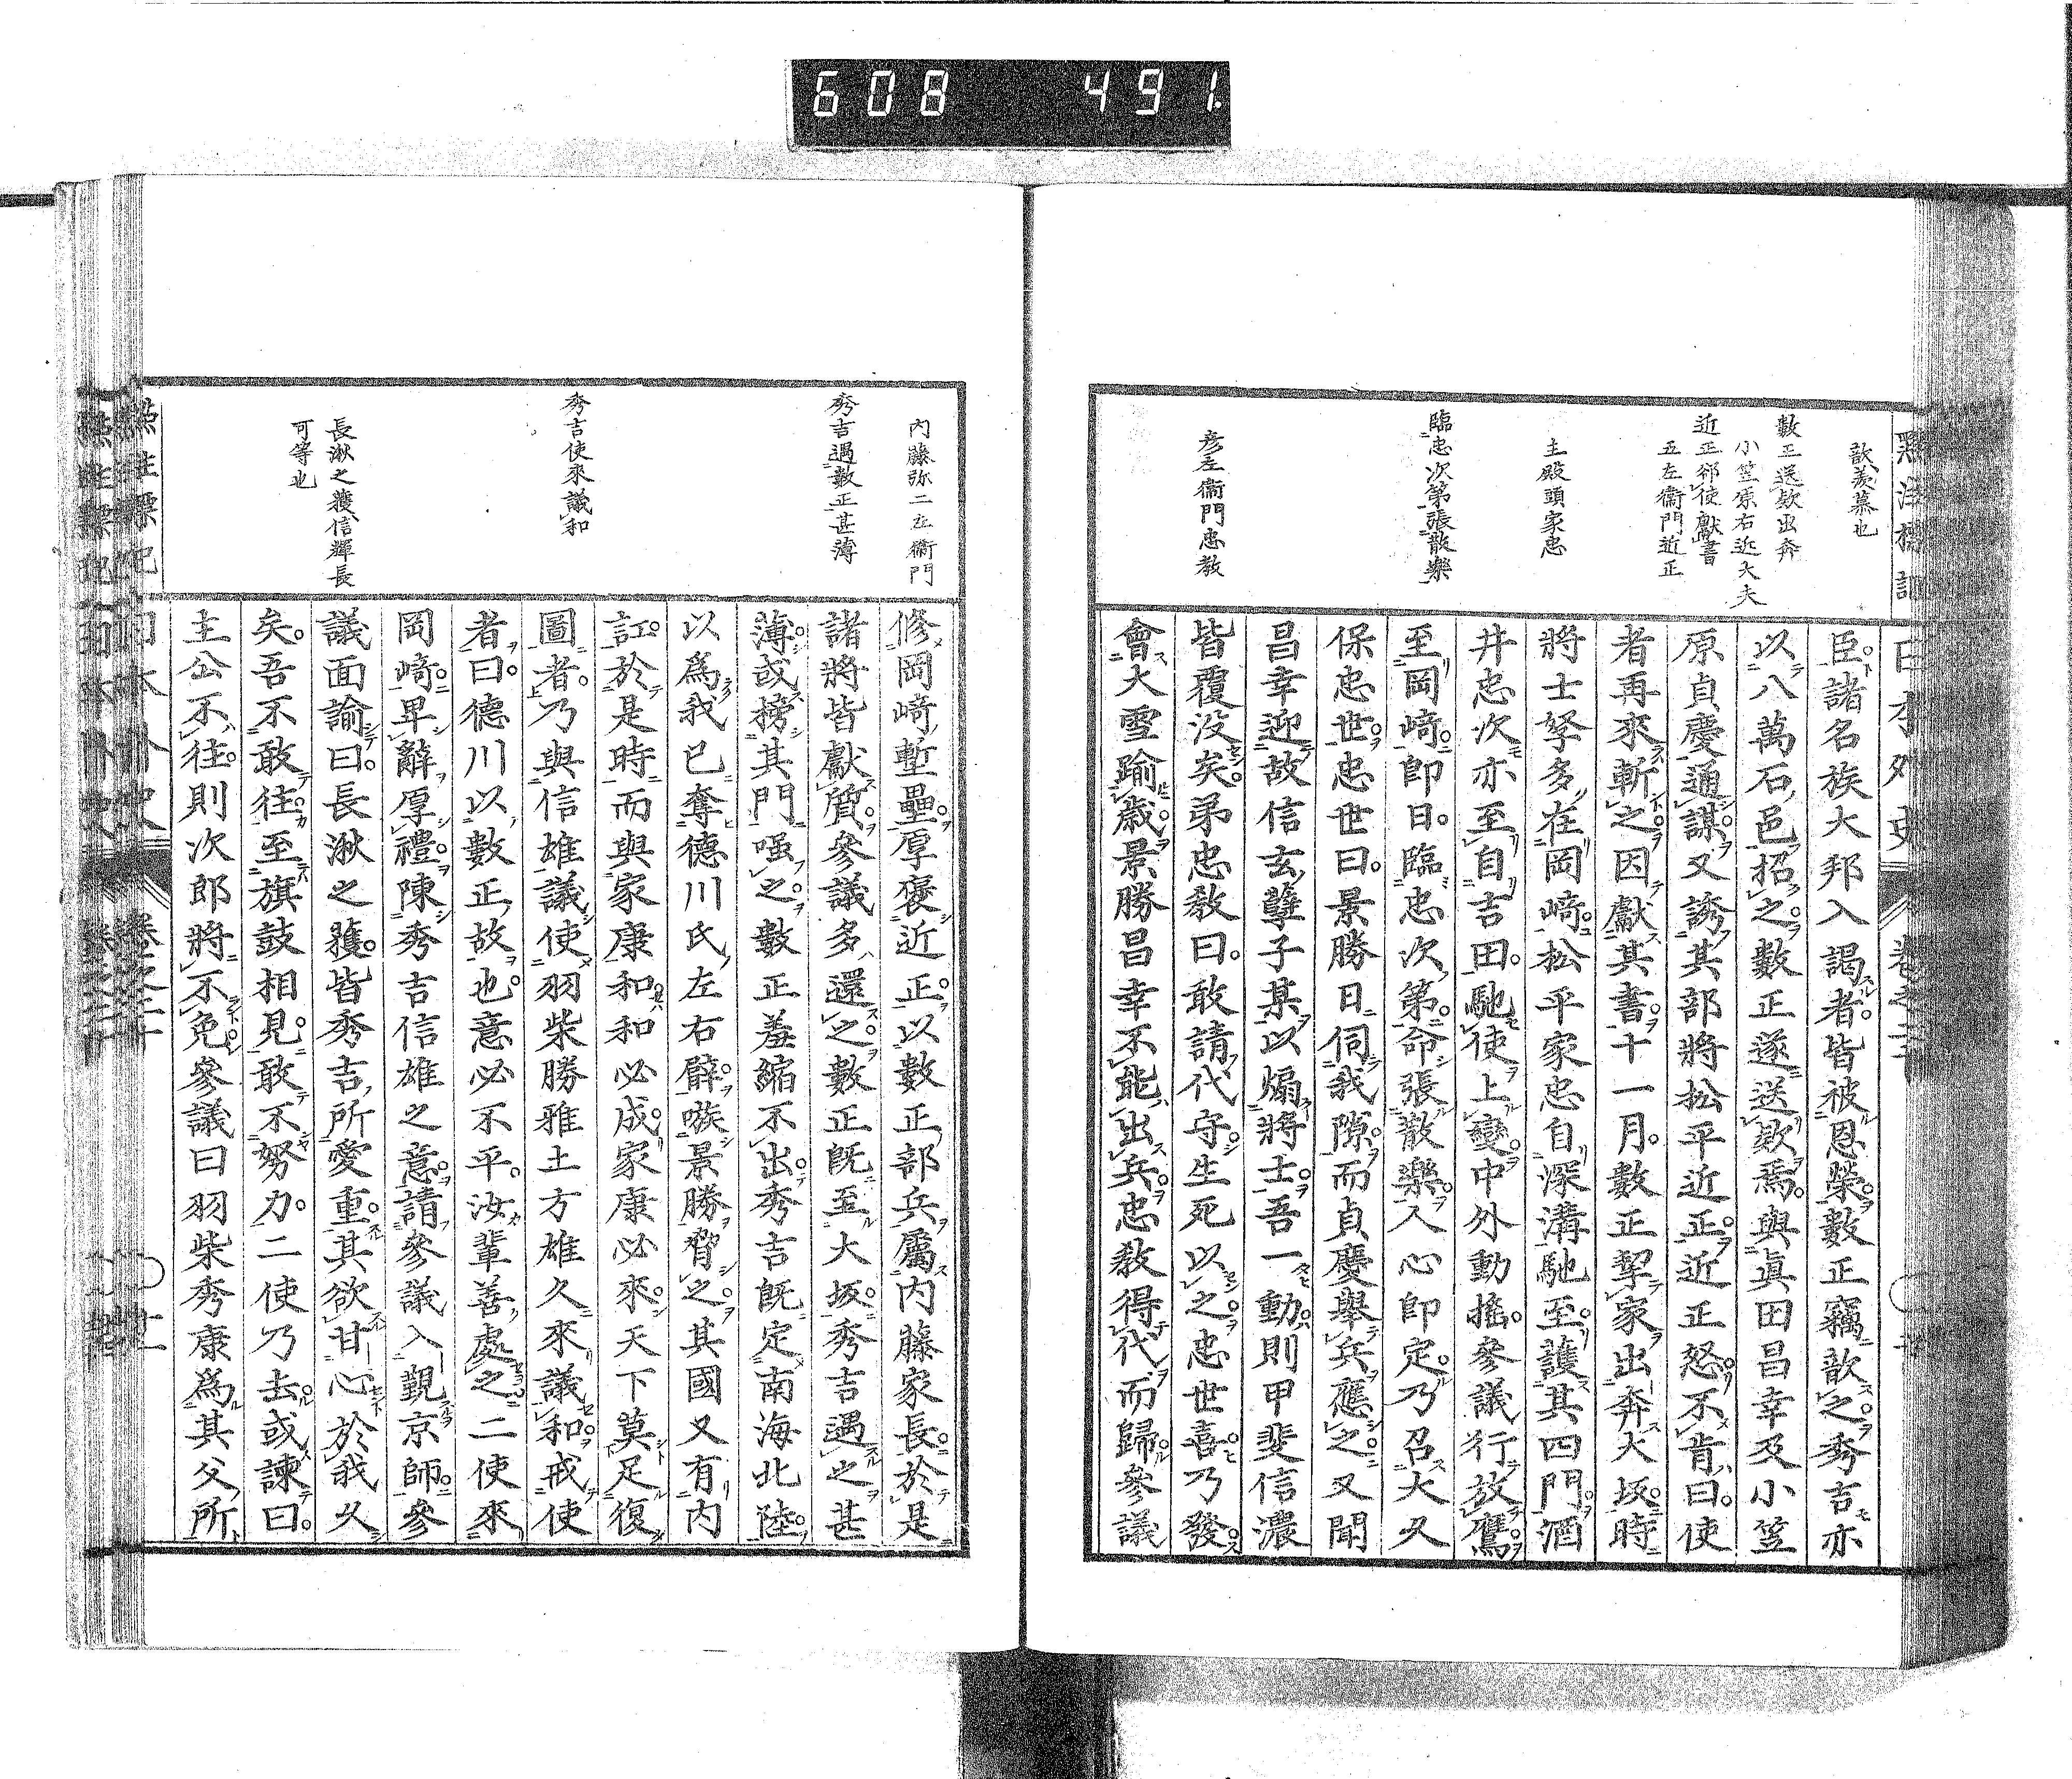 608 491
歆羨慕也
數正送欵出奔
小笠原右近大夫
近正郤使獻書
五左衞門近正
主殿頭家忠
臨忠次第張散樂
彦左衞門忠教
臣諸名族大邦入謁者皆被恩榮數正竊歆之秀吉亦
以八萬石邑招之數正遂送欵焉與眞田昌幸及小笠
原貞慶通謀又誘其部將松平近正近正怒不肯曰使
者再來斬之因獻其書十一月數正挈家出奔大坂時
將士孥多在岡﨑松平家忠自深溝馳至護其四門酒
井忠次亦至自吉田馳使上變中外動搖參議行放鷹
至岡﨑卽日臨忠次第命張散樂人心卽定乃召大久
保忠世忠世曰景勝日伺我隙而貞慶舉兵應之又聞
昌幸迎故信玄孽子某以煽將士吾一動則甲斐信濃
皆覆没矣弟忠教曰敢請代守生死以之忠世喜乃發
會大雪踰歲景勝昌幸不能出兵忠教得代而歸參議
内藤弥二左衞門
秀吉遇數正甚薄
秀吉使來議和
長湫之獲信輝長
可等也
修岡﨑塹壘厚褒近正以數正部兵屬内藤家長於是
諸將皆獻質參議多還之數正既至大坂秀吉遇之甚
薄或榜其門嗤之數正羞縮不出秀吉既定南海北陸
以爲我已奪德川氏左右臂嗾景勝脅之其國又有内
訌於是時而與家康和和必成家康必來天下莫足復
圖者乃與信雄議使羽柴勝雅土方雄久來議和戒使
者曰德川以數正故也意必不平汝輩善處之二使來
岡﨑卑辭厚禮陳秀吉信雄之意請參議入覲京師參
議面諭曰長湫之獲皆秀吉所愛重其欲甘心於我久
矣吾不敢往至旗鼓相見敢不努力二使乃去或諫曰
主公不往則次郎將不免參議曰羽柴秀康爲其父所